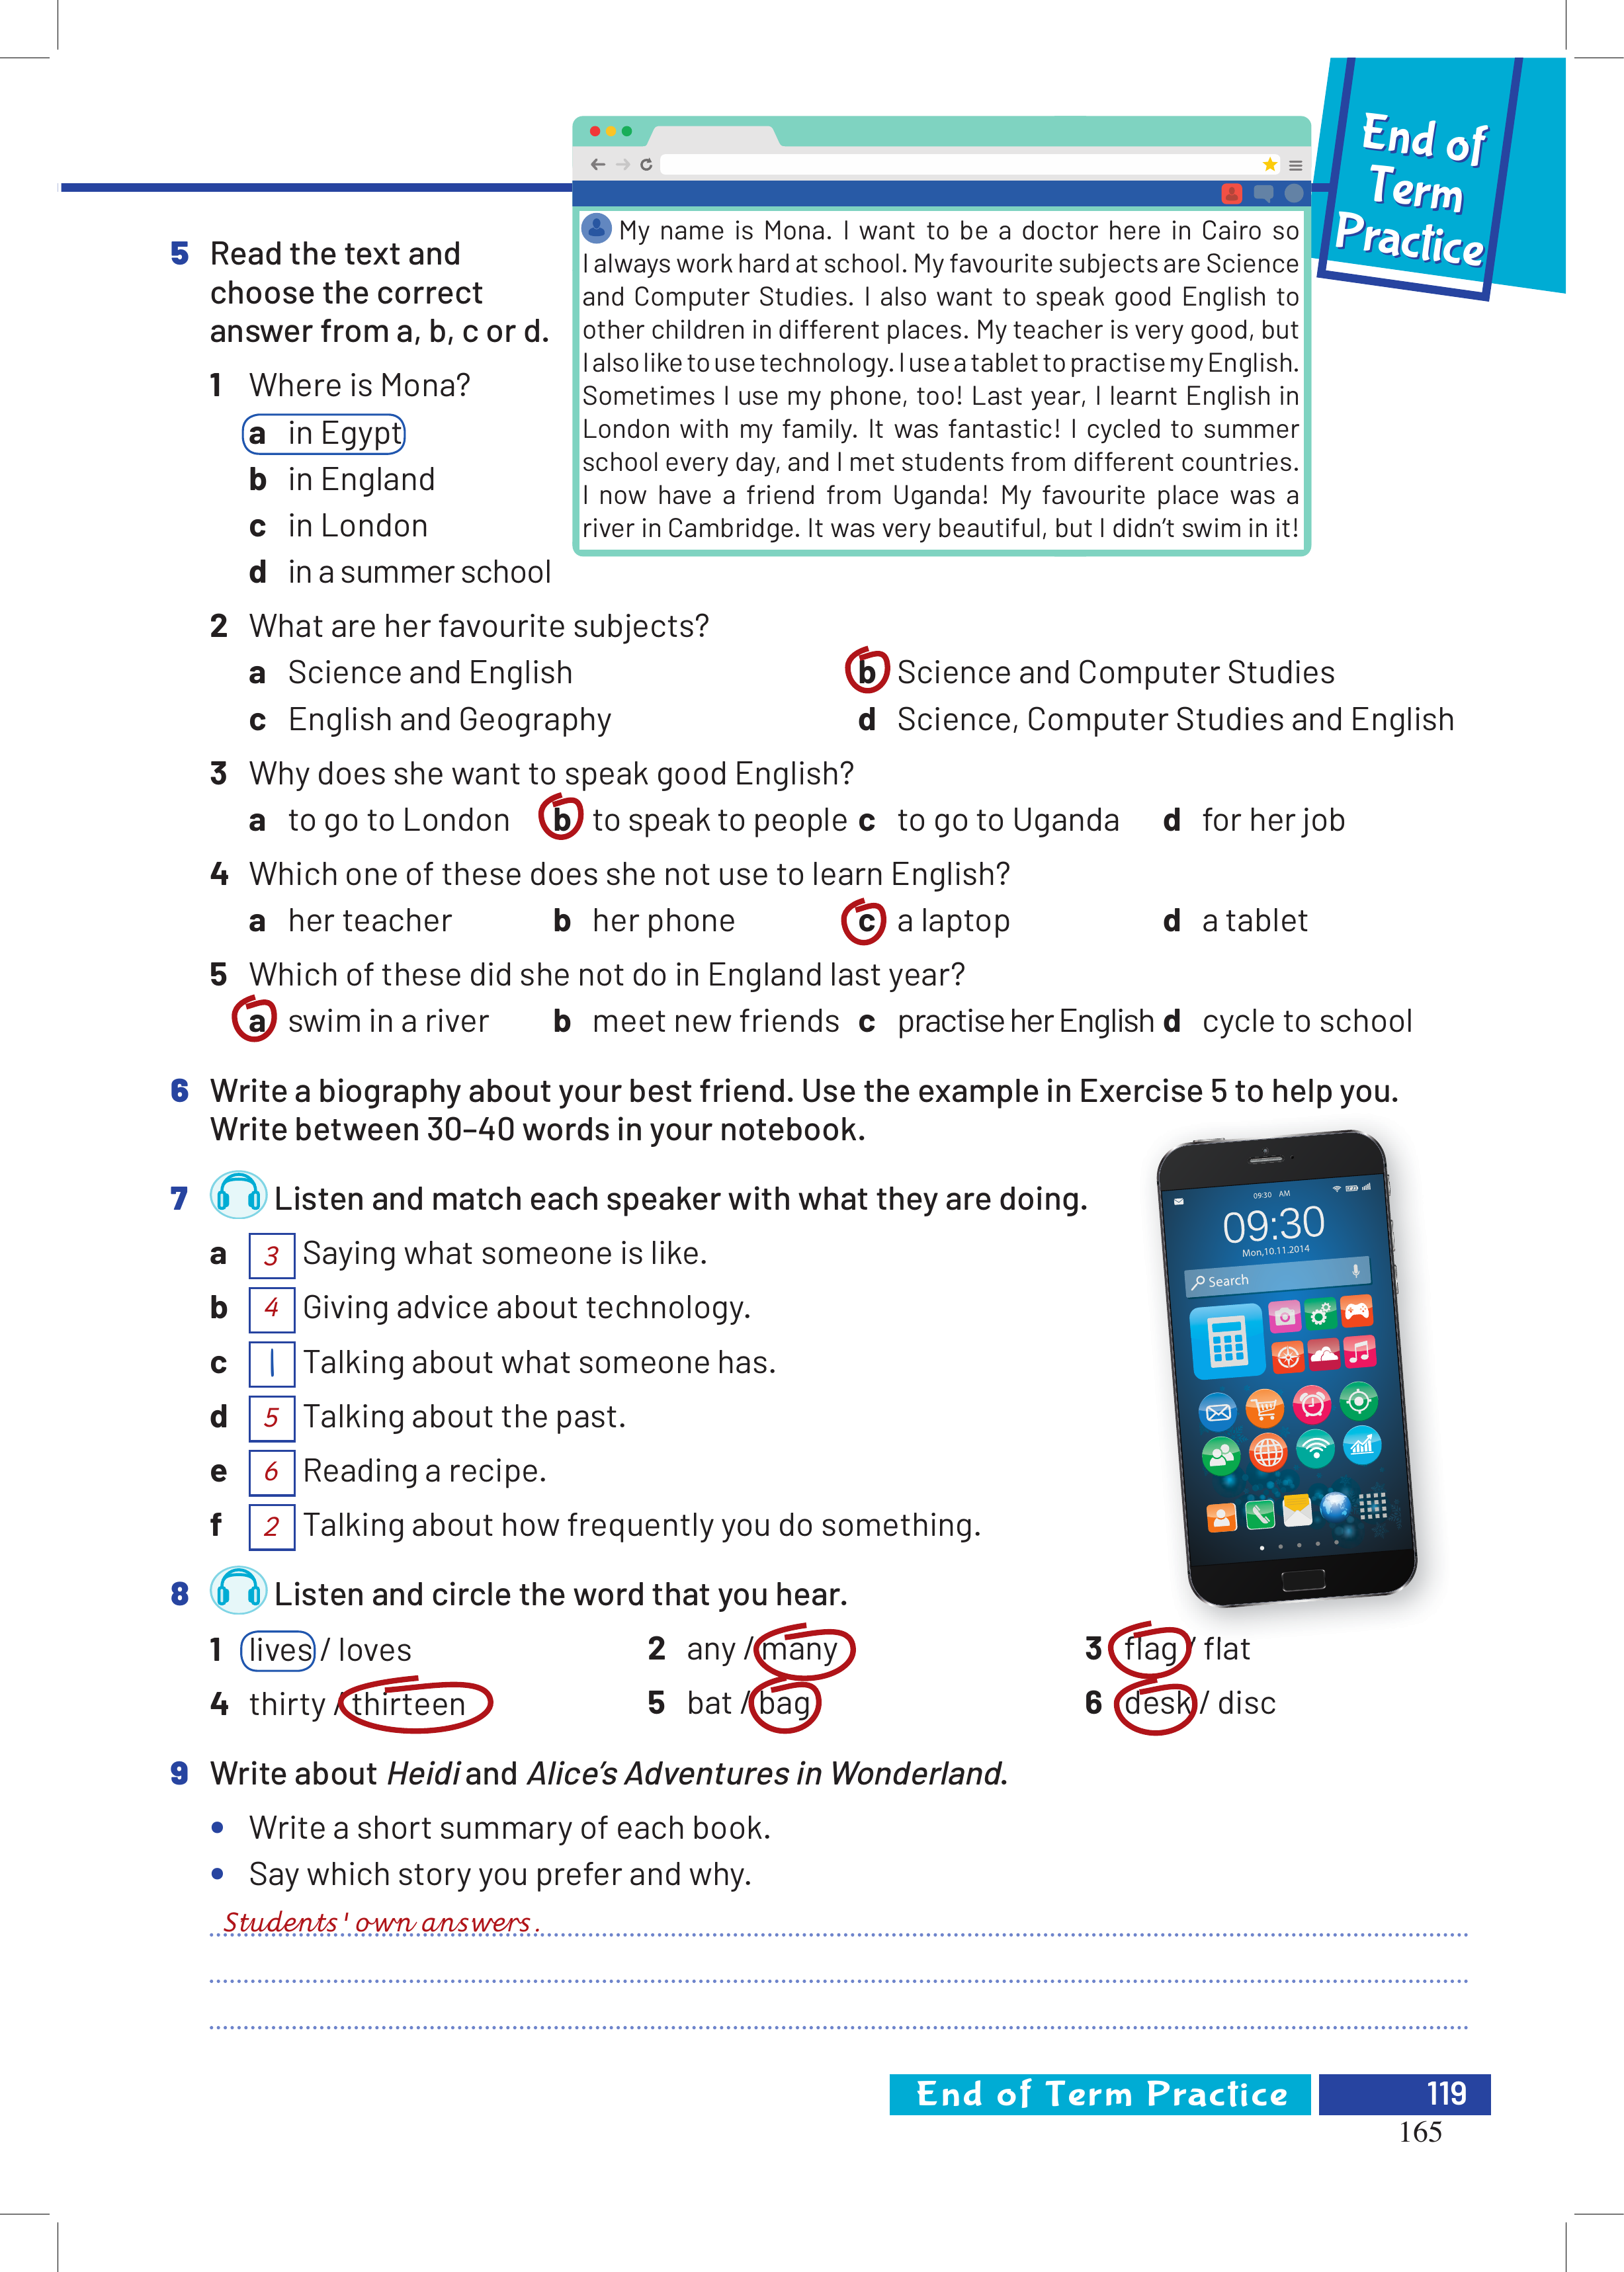 End of
Term
Practice
My name is Mona. I want to be a doctor here in Cairo so
I always work hard at school. My favourite subjects are Science
and Computer Studies. I also want to speak good English to
other children in different places. My teacher is very good, but
I also like to use technology. I use a tablet to practise my English.
Sometimes I use my phone, too! Last year, I learnt English in
London with my family. It was fantastic! I cycled to summer
school every day, and I met students from different countries.
I now have a friend from Uganda! My favourite place was a
river in Cambridge. It was very beautiful, but I didn't swim in it!
5 Read the text and
choose the correct
answer from a, b, c or d.
1 Where is Mona?
a in Egypt
b in England
c in London
d in a summer school
2 What are her favourite subjects?
a Science and English b Science and Computer Studies
c English and Geography d Science, Computer Studies and English
3 Why does she want to speak good English?
a to go to London b to speak to people c to go to Uganda d for her job
4 Which one of these does she not use to learn English?
a her teacher b her phone c a laptop d a tablet
5 Which of these did she not do in England last year?
a swim in a river b meet new friends c practise her English d cycle to school
6 Write a biography about your best friend. Use the example in Exercise 5 to help you.
Write between 30–40 words in your notebook.
7 Listen and match each speaker with what they are doing.
a 3 Saying what someone is like.
b 4 Giving advice about technology.
c 1 Talking about what someone has.
d 5 Talking about the past.
e 6 Reading a recipe.
f 2 Talking about how frequently you do something.
09:30 AM
09:30
Mon,10.11.2014
Search
8 Listen and circle the word that you hear.
1 lives / loves 2 any / many 3 flag / flat
4 thirty / thirteen 5 bat / bag 6 desk / disc
9 Write about Heidi and Alice's Adventures in Wonderland.
• Write a short summary of each book.
• Say which story you prefer and why.
Students' own answers.
End of Term Practice 119
165